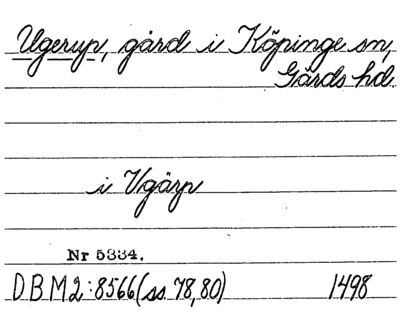 Ugerup, gård i Köpinge sn,
Gärds hd.
i Vgärp
Nr 5334.
DBM2:8566(ss. 78, 80) 1498